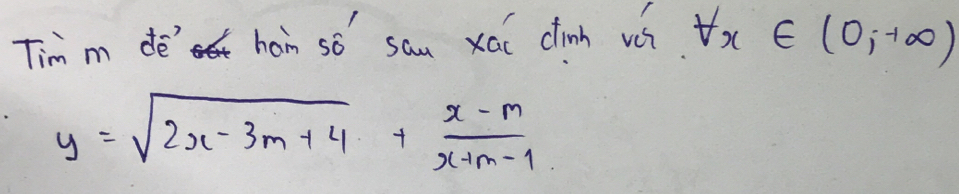 Tìm m để hàm số sau xác định với ∀x ∈ (0;+∞)
y = √(2x - 3m + 4) + (x - m)/(x+m-1)